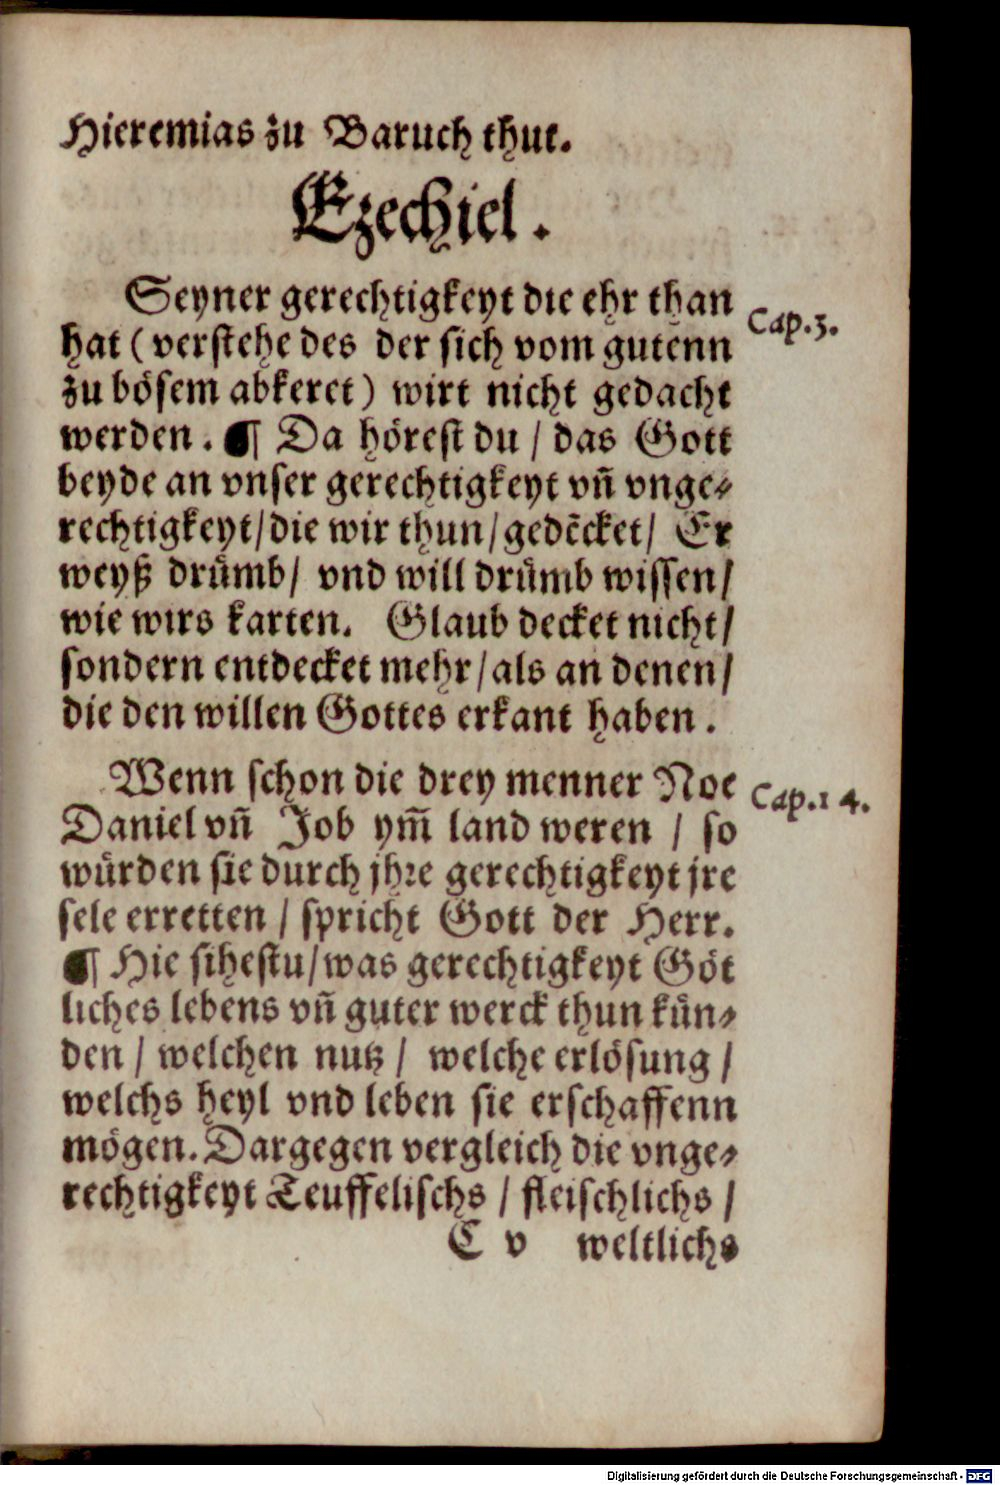 Hieremias zu Baruch thut.
Ezechiel.
Seyner gerechtigkeyt die ehr than
Cap.3.
hat (verstehe des der sich vom gutenn
zu bösem abkeret) wirt nicht gedacht
werden. ¶ Da hörest du / das Gott
beyde an vnser gerechtigkeyt vn̄ vnge⸗
rechtigkeyt/die wir thun/gedēcket/ Er
weyß drümb/ vnd will drümb wissen/
wie wirs karten. Glaub decket nicht/
sondern entdecket mehr/als an denen/
die den willen Gottes erkant haben.
Wenn schon die drey menner Noe
Cap.14.
Daniel vn̄ Job ym̄ land weren / so
würden sie durch jhre gerechtigkeyt jre
sele erretten / spricht Gott der Herr.
¶ Hie sihestu/was gerechtigkeyt Göt
liches lebens vn̄ guter werck thun kün⸗
den / welchen nutz / welche erlösung /
welchs heyl vnd leben sie erschaffenn
mögen. Dargegen vergleich die vnge⸗
rechtigkeyt Teuffelischs / fleischlichs /
C v weltlichs
Digitalisierung gefördert durch die Deutsche Forschungsgemeinschaft - DFG